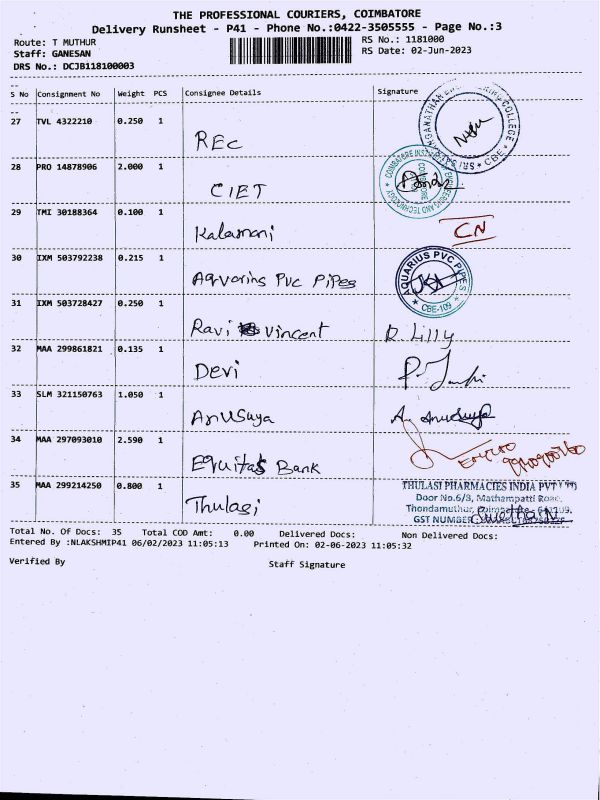 THE PROFESSIONAL COURIERS, COIMBATORE
Delivery Runsheet - P41 - Phone No.:0422-3505555 - Page No.:3
Route: T MUTHUR RS No.: 1181000
Staff: GANESAN RS Date: 02-Jun-2023
DRS No.: DCJB118100003
S No Consignment No Weight PCS Consignee Details Signature
27 TVL 4322210 0.250 1 REC
28 PRO 14878906 2.000 1 CIET
29 TMI 30188364 0.100 1 Kalamani CN
30 IXM 503792238 0.215 1 Aqvarins Pvc Pipes AQUARIUS PVC PIPES CBE-109
31 IXM 503728427 0.250 1 Ravi Vincent R. Lilly
32 MAA 299861821 0.135 1 Devi
33 SLM 321150763 1.050 1 Anusuya A. Anusuya
34 MAA 297093010 2.590 1 Equitas Bank
35 MAA 299214250 0.800 1 Thulasi THULASI PHARMACIES INDIA PVT
Door No.6/3, Mathampatti Road,
Thondamuthur,
GST NUMBER
Total No. Of Docs: 35 Total COD Amt: 0.00 Delivered Docs: Non Delivered Docs:
Entered By :NLAKSHMIP41 06/02/2023 11:05:13 Printed On: 02-06-2023 11:05:32
Verified By Staff Signature